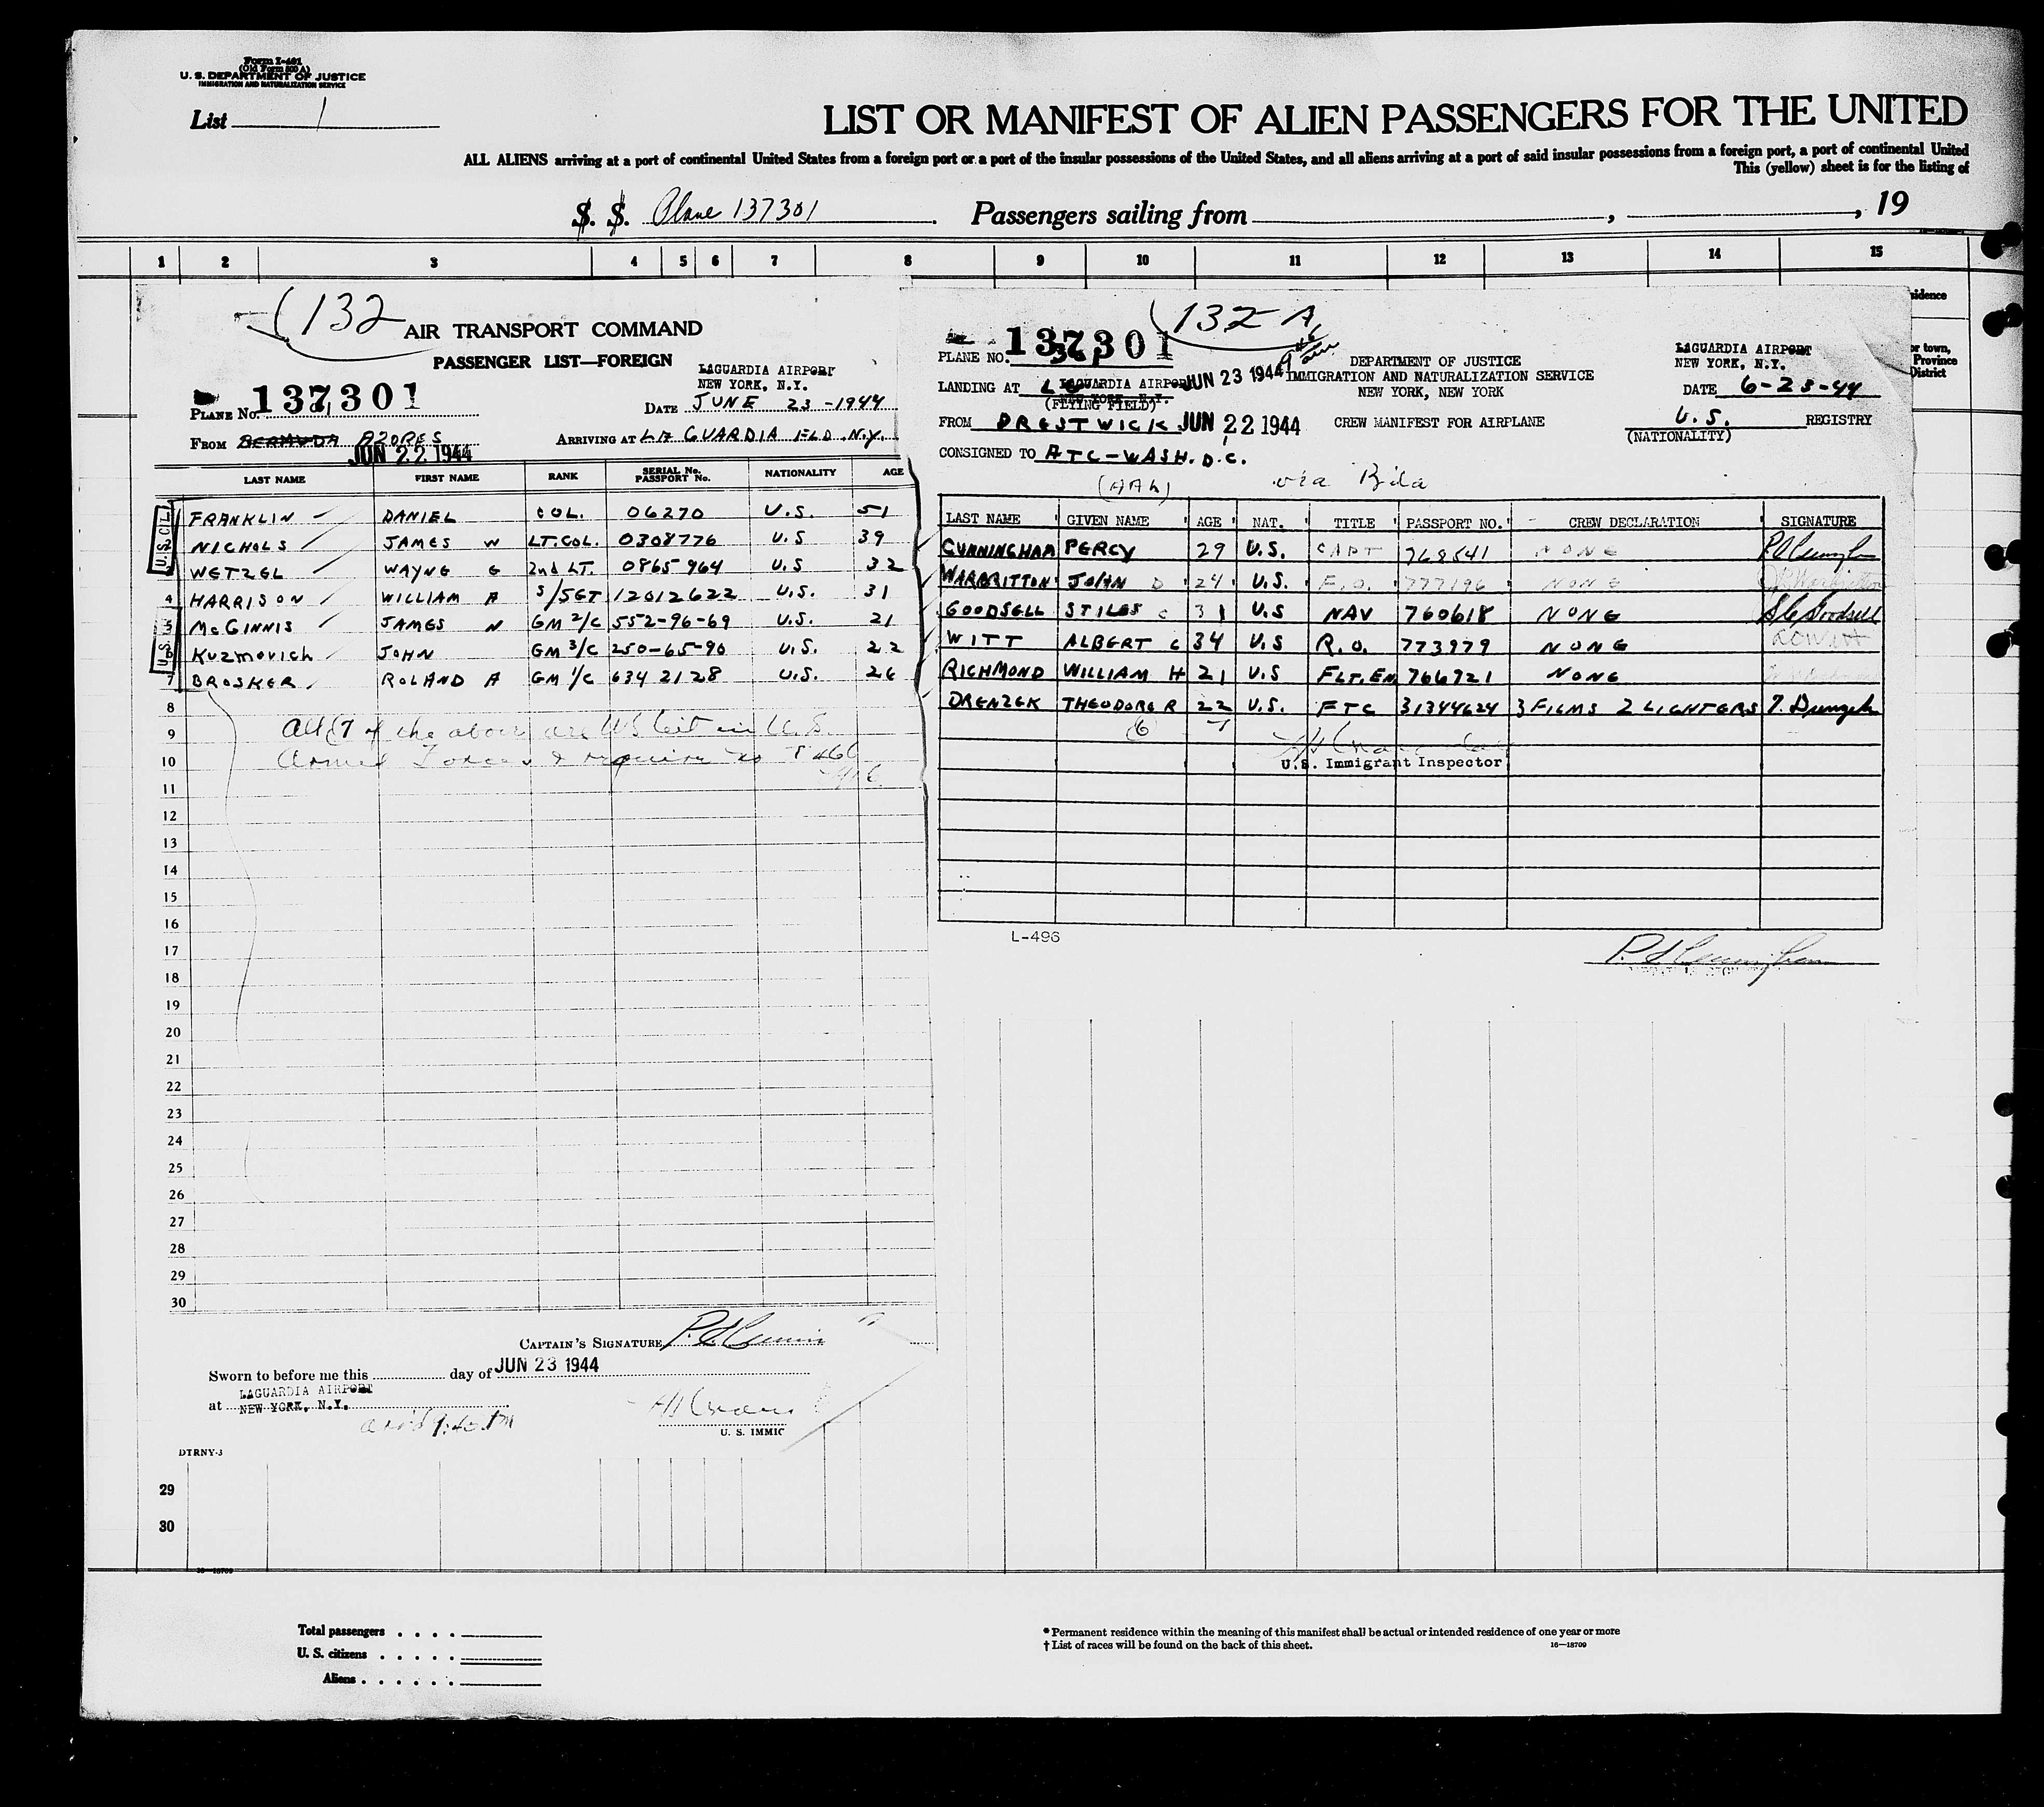 Form I-461
(Old Form 500 A)
U. S. DEPARTMENT OF JUSTICE
IMMIGRATION AND NATURALIZATION SERVICE
List 1
LIST OR MANIFEST OF ALIEN PASSENGERS FOR THE UNITED
ALL ALIENS arriving at a port of continental United States from a foreign port or a port of the insular possessions of the United States, and all aliens arriving at a port of said insular possessions from a foreign port, a port of continental United
This (yellow) sheet is for the listing of
S. S. Plane 137301. Passengers sailing from , , 19
1 2 3 4 5 6 7 8 9 10 11 12 13 14 15
132
AIR TRANSPORT COMMAND
PASSENGER LIST—FOREIGN
LAGUARDIA AIRPORT
NEW YORK, N.Y.
PLANE No. 137301
DATE JUNE 23-1944
FROM BERMUDA AZORES ARRIVING AT LA GUARDIA FLD. N.Y.
JUN 22 1944
LAST NAME FIRST NAME RANK SERIAL No. PASSPORT No. NATIONALITY AGE
U.S. CIT.
FRANKLIN DANIEL COL. 06270 U.S. 51
NICHOLS JAMES W LT.COL. 0308776 U.S 39
WETZEL WAYNE G 2nd LT. 0865964 U.S 32
4 HARRISON WILLIAM A S/SGT 12012622 U.S. 31
5 McGINNIS JAMES N GM 2/C 552-96-69 U.S. 21
6 KUZMOVICH JOHN GM 3/C 250-65-90 U.S. 22
7 BROSKER ROLAND A GM 1/C 634 21 28 U.S. 26
8
9 All (7) of the above are US Cit in U.S.
10 Armed Forces & require no
11
12
13
14
15
16
17
18
19
20
21
22
23
24
25
26
27
28
29
30
CAPTAIN'S SIGNATURE
Sworn to before me this day of JUN 23 1944
LAGUARDIA AIRPORT
at NEW YORK, N.Y.
U. S. IMMIG
DTRNY-3
132 A
PLANE NO. 137301
LANDING AT LAGUARDIA AIRPORT JUN 23 1944
NEW YORK, N.Y.
(FLYING FIELD)
FROM PRESTWICK JUN 22 1944
CONSIGNED TO ATC-WASH. D.C.
(AAL) via Bda
DEPARTMENT OF JUSTICE
IMMIGRATION AND NATURALIZATION SERVICE
NEW YORK, NEW YORK
CREW MANIFEST FOR AIRPLANE
LAGUARDIA AIRPORT
NEW YORK, N.Y.
DATE 6-23-44
U.S. REGISTRY
(NATIONALITY)
LAST NAME GIVEN NAME AGE NAT. TITLE PASSPORT NO. CREW DECLARATION SIGNATURE
CUNNINGHAM PERCY 29 U.S. CAPT 768541 NONE
WARBRITTON JOHN D 24 U.S. F.O. 777196 NONE
GOODSELL STILES C 31 U.S NAV 760618 NONE S C Goodsell
WITT ALBERT C 34 U.S R.O. 773979 NONE
RICHMOND WILLIAM H 21 U.S FLT.EN 766721 NONE
DRENZEK THEODORE R 22 U.S. FTC 31344624 3 FILMS 2 LIGHTERS T. Drenzek
(6)
U.S. Immigrant Inspector
L-496
P. S Cunningham
sidence
or town,
Province
District
29
30
16—18709
Total passengers
U. S. citizens
Aliens
* Permanent residence within the meaning of this manifest shall be actual or intended residence of one year or more
† List of races will be found on the back of this sheet.
16—18709